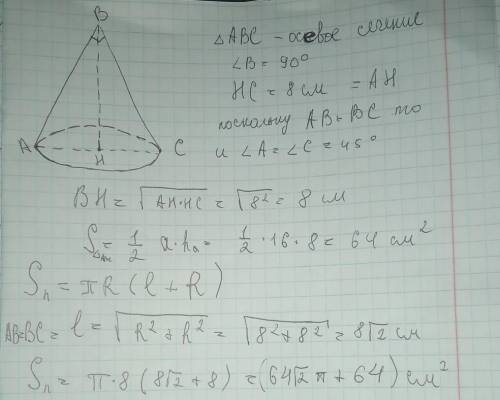 B
△ABC - осевое сечение
∠B = 90°
HC = 8 см = AH
поскольку AB = BC то
и ∠A = ∠C = 45°
A H C
BH = √AH·HC = √8² = 8 см
S△ABC = 1/2 a·hₐ = 1/2 · 16 · 8 = 64 см²
Sп = πR(l + R)
AB=BC = l = √R² + R² = √8² + 8² = 8√2 см
Sп = π·8(8√2 + 8) = (64√2π + 64) см²